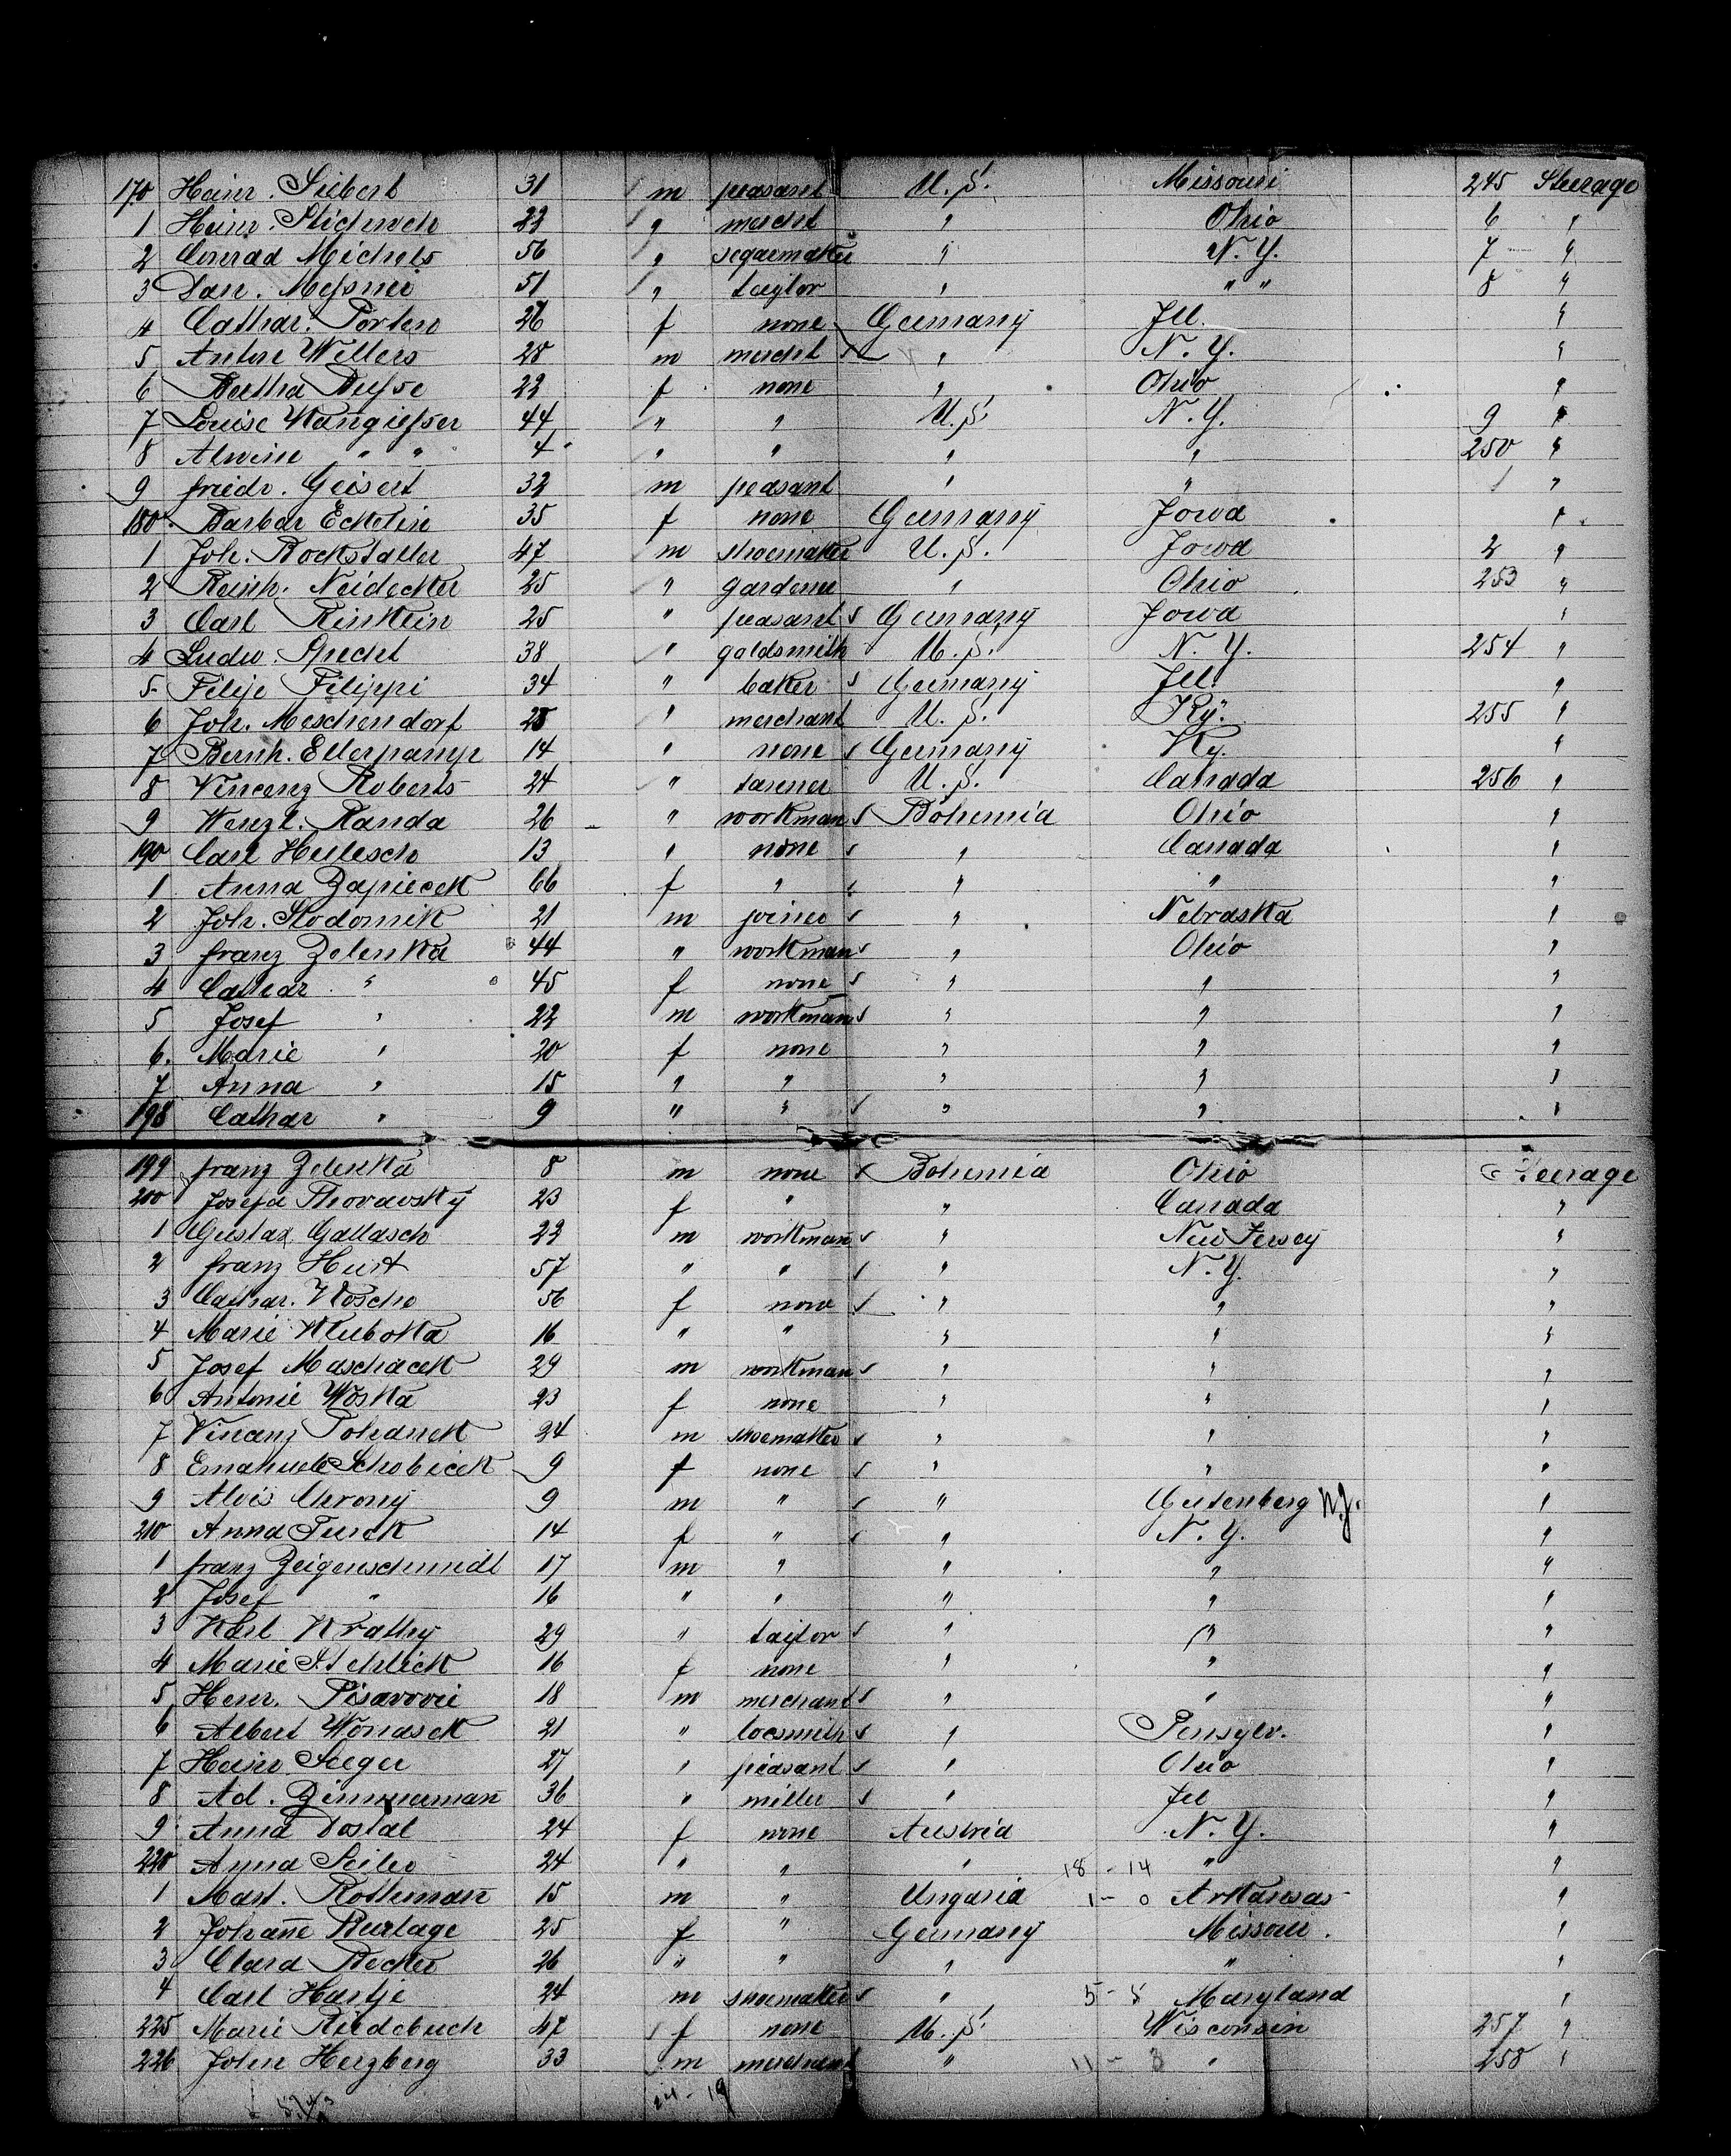 170 Heinr. Siebert 31 m peasant U. S. Missouri 245 Steerage
1 Heinr. Stichweh 22 " mercht " Ohio 6 "
2 Conrad Michels 56 " segarmaker " N. Y. 7 "
3 Dan. Messner 51 " taylor " " " 8 "
4 Cathar. Porten 26 f none Germany Ill. "
5 Anton Willers 28 m mercht " N. Y. "
6 Bertha Busse 22 f none " Ohio "
7 Louise Wangiesser 44 " " U. S. N. Y. 9 "
8 Alwine " " 4 " " " " 250 "
9 Friedr. Geisert 32 m peasant " " 1 "
180 Barbar Ecklein 35 f none Germany Iowa "
1 Joh. Bockstaller 47 m shoemaker U. S. Iowa 2 "
2 Reinh. Neidecker 25 " gardener " Ohio 253 "
3 Carl Rinklein 25 " peasant Germany Iowa "
4 Ludw. Specht 38 " goldsmith U. S. N. Y. 254 "
5 Felije Filippi 34 " baker Germany Ill. "
6 Joh. Meschendorf 28 " merchant U. S. Ky. 255 "
7 Bernh. Ellerkamp 14 " none Germany Ky. "
8 Vincenz Roberts 24 " U. S. Canada 256 "
9 Wenzl. Randa 26 " workman Bohemia Ohio "
190 Carl Hulesch 13 " none " Canada "
1 Anna Zapiecek 66 f " " " "
2 Joh. Slodomik 21 m joiner " Nebraska "
3 Franz Zelenka 44 " workman " Ohio "
4 Cathar " 45 f none " " "
5 Josef " 22 m workman " " "
6 Marie " 20 f none " " "
7 Anna " 15 " " " " "
198 Cathar " 9 " " " " "
199 Franz Zelenka 8 m none Bohemia Ohio Steerage
200 Josefa 23 f " " Canada "
1 Gustav Gallasch 22 m workman " New Jersey "
2 Franz Hurt 57 " " " N. Y. "
3 Cathar. Woscho 56 f none " " "
4 Marie Kubotta 16 " " " " "
5 Josef Maschacek 29 m workman " " "
6 Antonie Woska 23 f none " " "
7 Vincenz Pohanek 24 m shoemaker " " "
8 Emanuele Schobicek 9 f none " " "
9 Alois Cherony 9 m " " Gutenberg N.J. "
210 Anna Turek 14 f " " N. Y. "
1 Franz Zeigenschmidt 17 m " " " "
2 Josef " 16 " " " " "
3 Karl Kratky 29 " taylor " " "
4 Marie Stehlick 16 f none " " "
5 Henr. Pisarovic 18 m merchant " " "
6 Albert Wondsek 21 " locsmith " Pensylv. "
7 Heinr Seeger 27 " peasant " Ohio "
8 Ad. Zimmerman 36 " miller " Ill "
9 Anna Dostal 24 f none Austria N. Y. "
220 Anna Seiler 24 " " " 18 - 14 " "
1 Mart. Rotheman 15 m " Ungaria 1 - 0 Arkansas "
2 Johane Burlage 25 f " Germany Missouri. "
3 Clara Becker 26 " " " " "
4 Carl Hartje 24 m shoemaker " 5 - 5 Maryland "
225 Marie Riedebuch 47 f none U. S. Wisconsin 257 "
226 John Herzberg 33 m merchant " 11 - 3 " 258 "